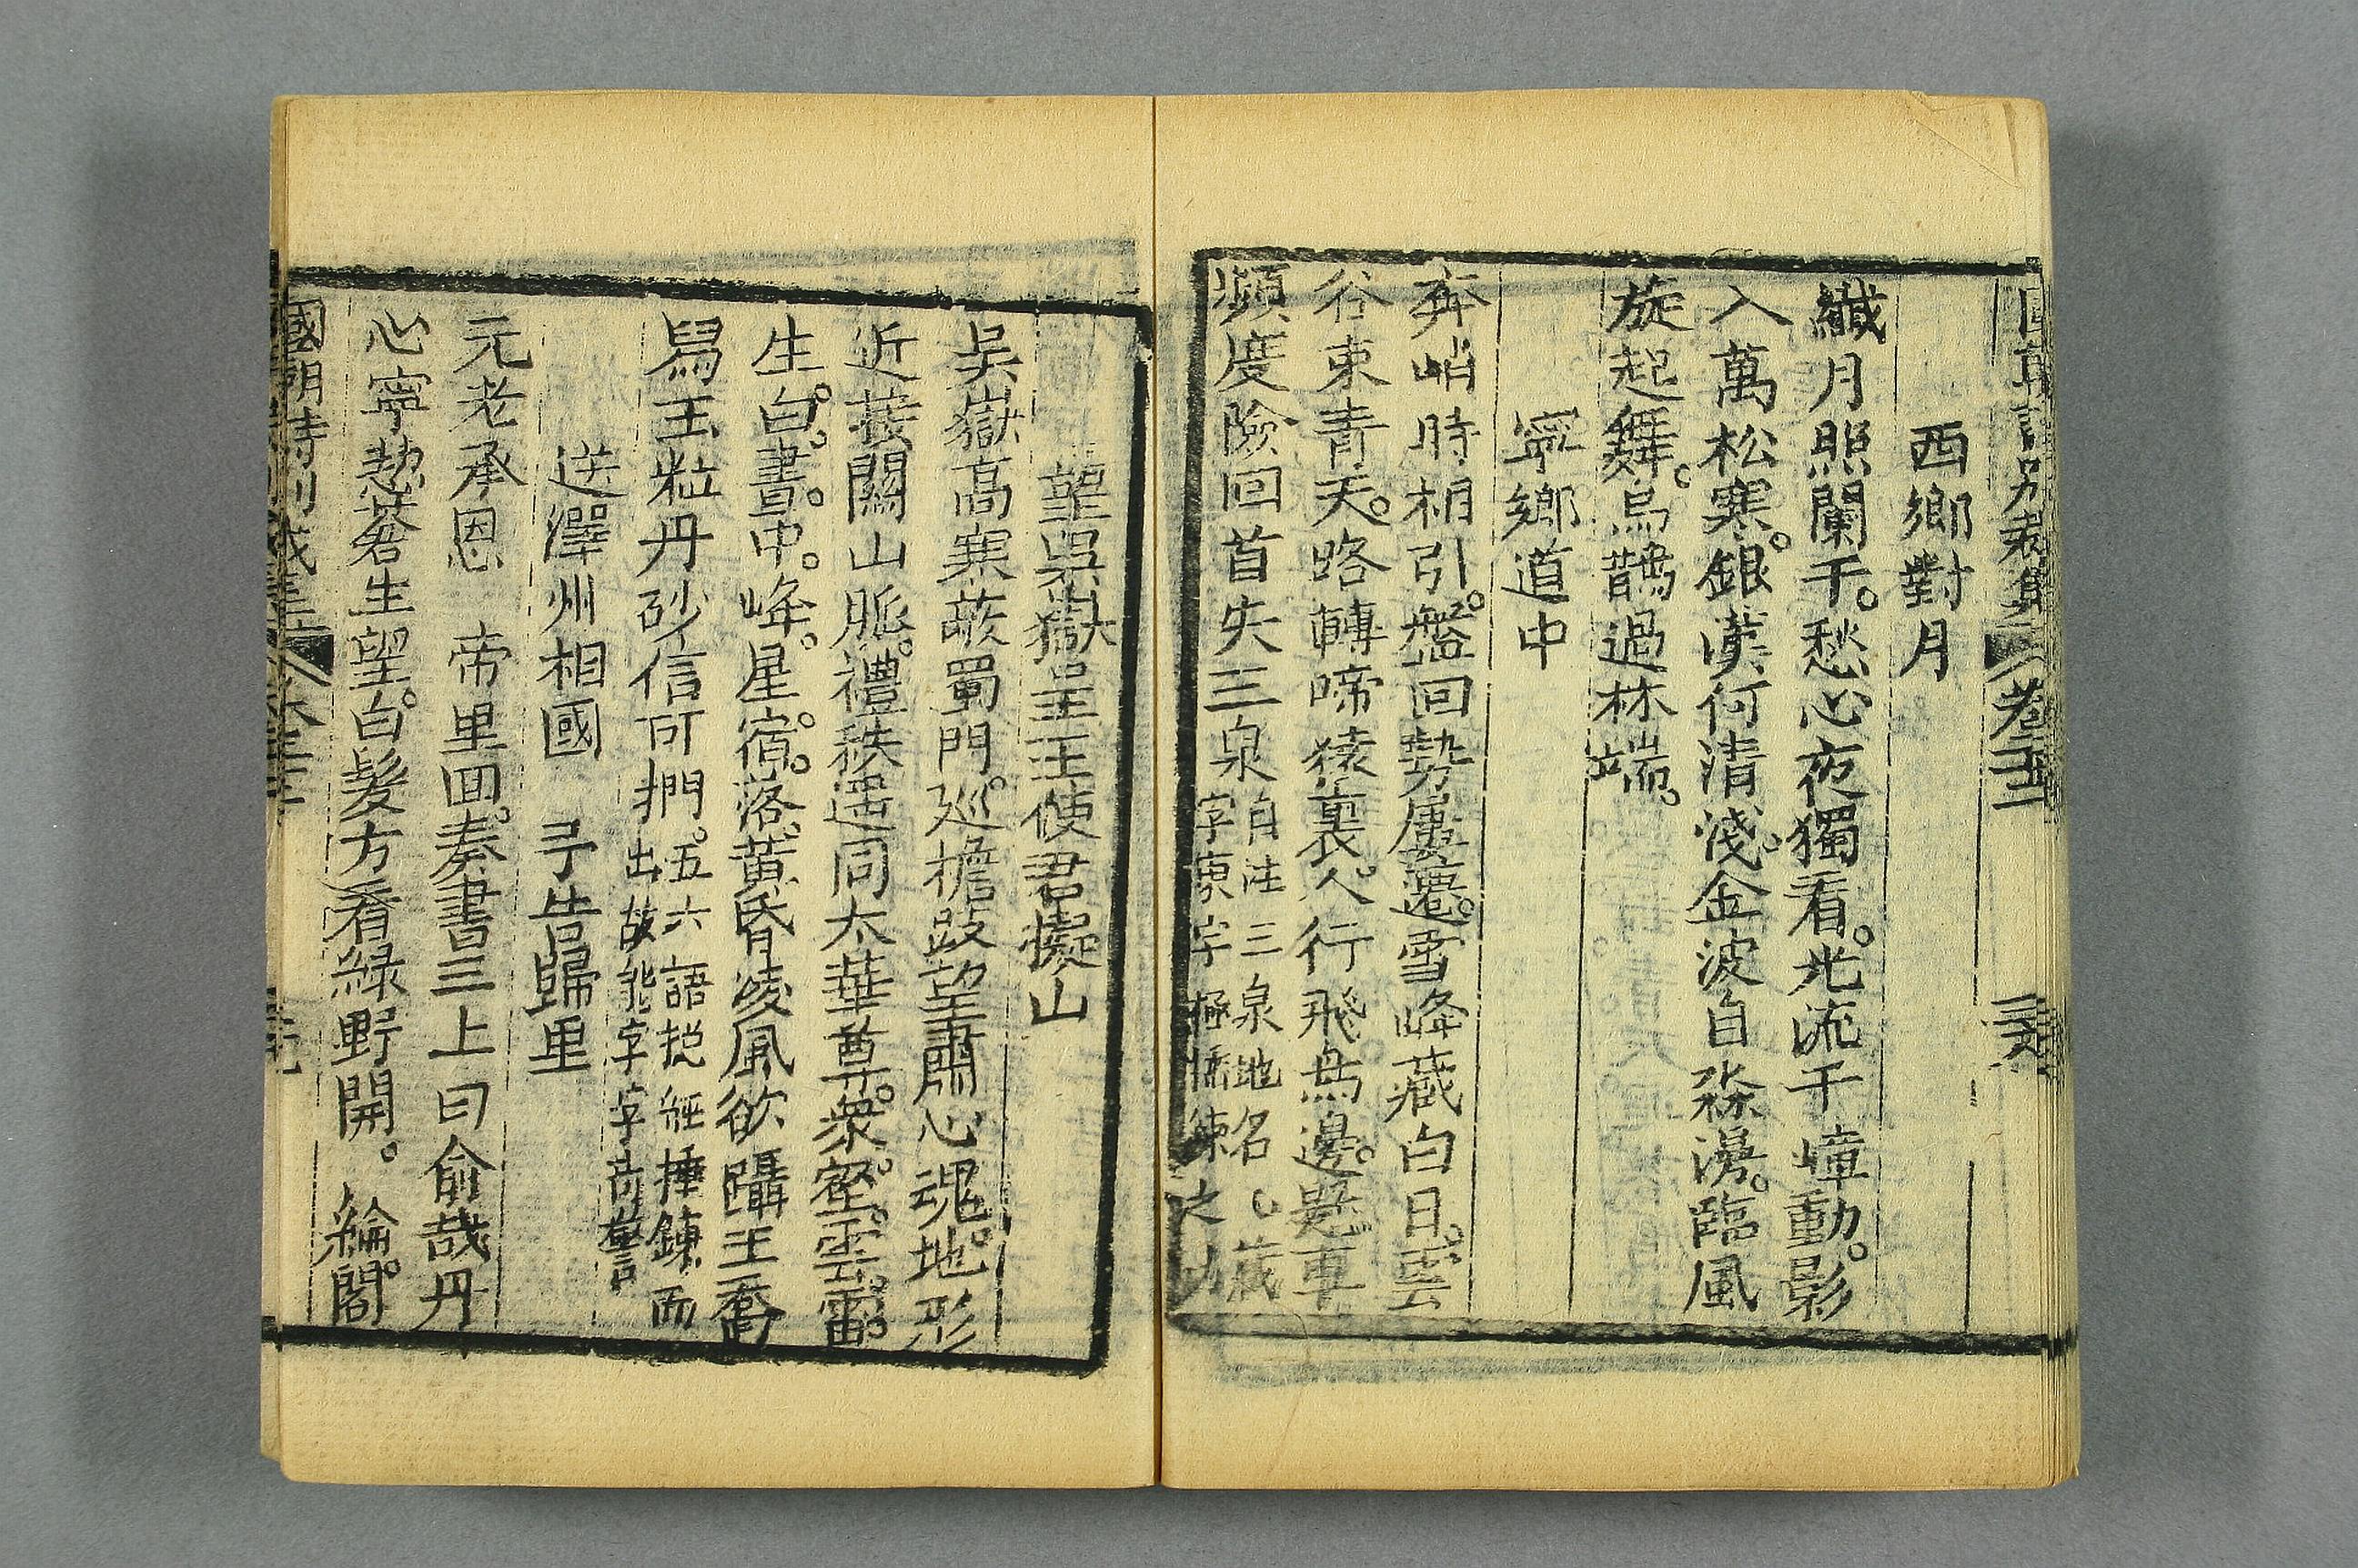 西鄉對月
纖月照闌干愁心夜獨看光流千嶂動影
入萬松寒銀漢何清淺金波自淼漫臨風
旋起舞烏鵲過林端
寧鄉道中
奔峭時相引盤回勢屢遷雪峰藏白日雲
谷束青天路轉啼猿裏人行飛鳥邊
頻度險回首失三泉
自注三泉地名
望吳嶽呈王使君擬山
吳嶽高寒蔽蜀門巡檐跂望肅心魂地形
近接關山脈禮秩遥同太華尊衆壑雲雷
生白晝中峰星宿落黄昏凌風欲躡王喬
舄玉粒丹砂信可捫
五六語挖經捶鍊而
出故能字字奇警
送澤州相國予告歸里
元老承恩 帝里回奏書三上曰俞哉丹
心寧恝蒼生望白髮方看緑野開 綸閣